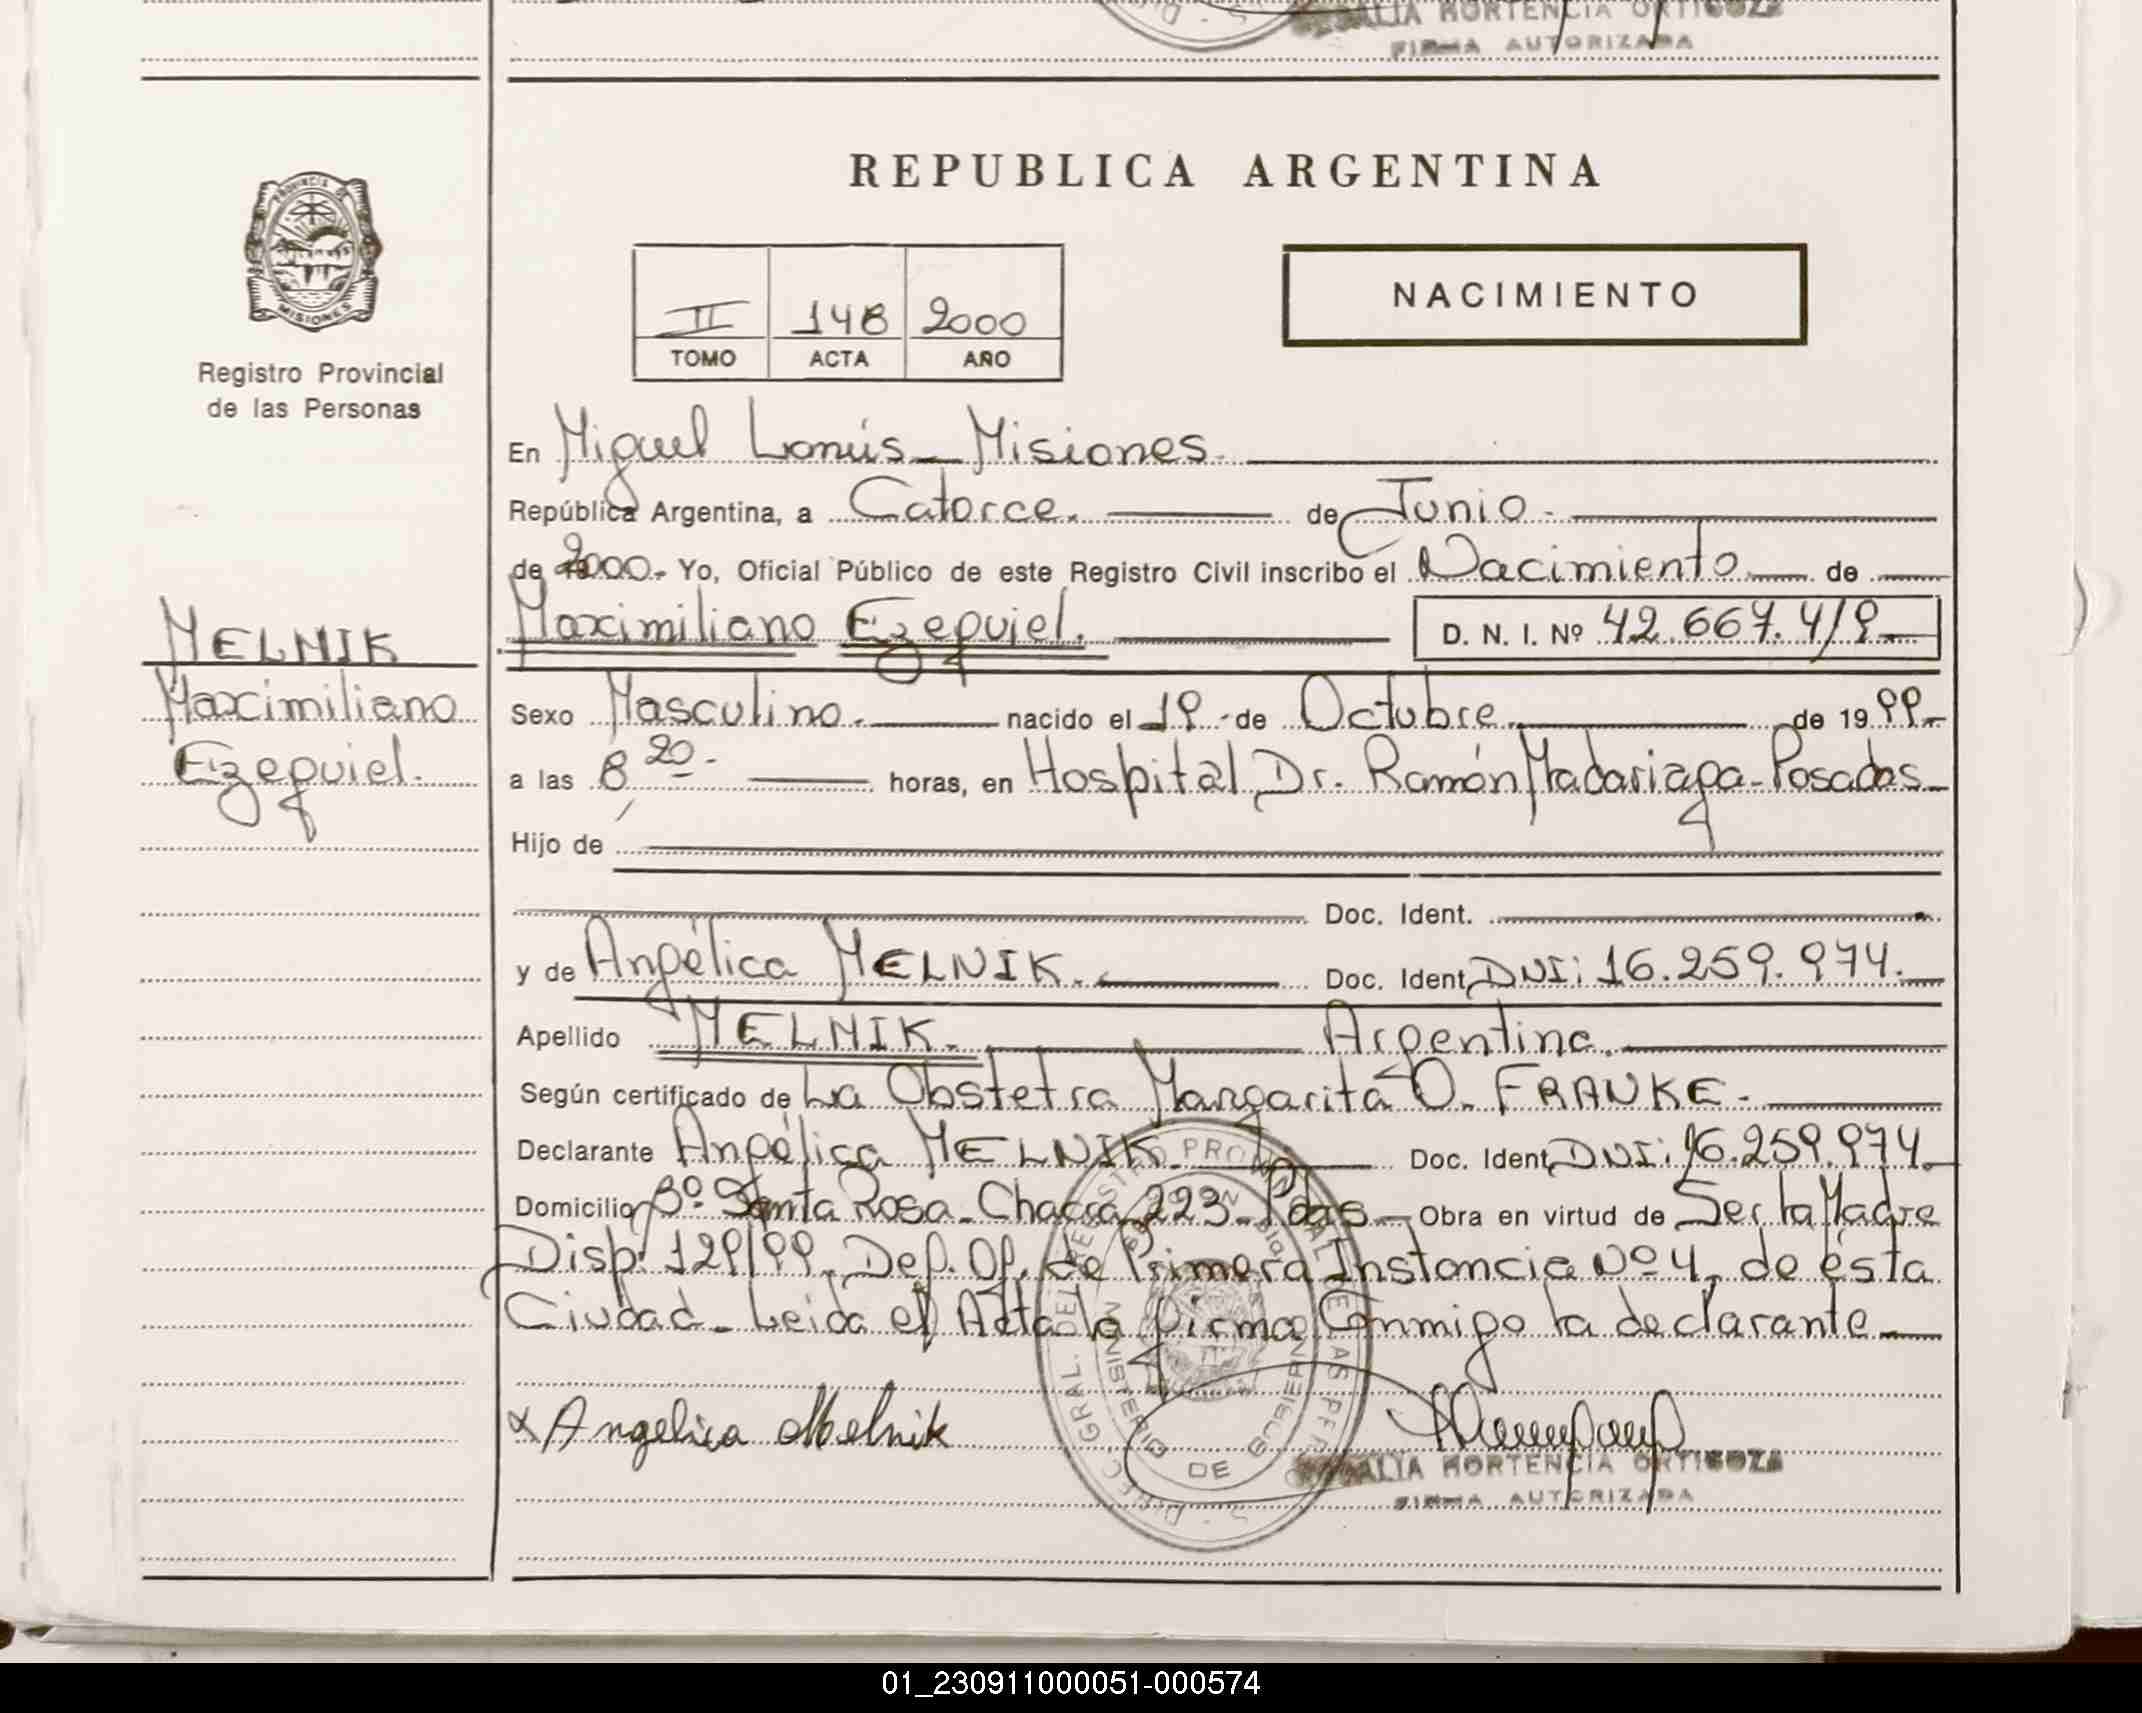 HORTENCIA ORTIGOZA
FIRMA AUTORIZADA
PROVINCIA DE
MISIONES
Registro Provincial
de las Personas
REPUBLICA ARGENTINA
II 148 2000
TOMO ACTA AÑO
NACIMIENTO
En Miguel Lanús - Misiones.
República Argentina, a Catorce. de Junio.
de 2000.- Yo, Oficial Público de este Registro Civil inscribo el Nacimiento de
Maximiliano Ezequiel. D. N. I. Nº 42.667.419
MELNIK
Maximiliano
Ezequiel.
Sexo Masculino. nacido el 19 - de Octubre de 1999.-
a las 8 20.- horas, en Hospital Dr. Ramón Madariaga - Posadas
Hijo de
Doc. Ident.
y de Angélica MELNIK. Doc. Ident. DNI: 16.259.974.
Apellido MELNIK. Argentina.
Según certificado de La Obstetra Margarita O. FRANKE.
Declarante Angélica MELNIK. Doc. Ident. DNI: 16.259.974.
Domicilio Bº Santa Rosa - Chacra 223 - Pdas - Obra en virtud de Ser la Madre
Disp: 129/99. Def. Of. de Primera Instancia Nº 4, de ésta
Ciudad - Leida el Acta la firma Conmigo la declarante
x Angelica Melnik
HORTENCIA ORTIGOZA
FIRMA AUTORIZADA
01_230911000051-000574